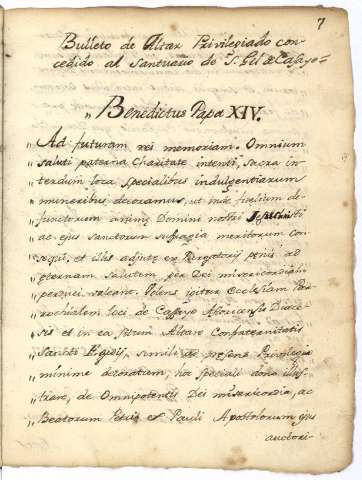 7
Bulleto de Altar Privilegiado con-
cedido al santuario de Sn. Gil de Casaye=
„ Benedictus Papa XIV.
Ad futuram rei memoriam. Omnium
saluti paterna Charitate intenti, sacra in-
„ terdum loca specialibus indulgentiarum
„ muneribus decoramus, ut inde fidelium de-
„ functorum animę Domini nostri
„ ac ejus sanctorum suffragia meritorum con-
„ sequi, et illis adjutę ex Purgatorii pęnis ad
„ ęternam salutem per Dei misericordiam
„ perduci valeant. Volens igitur Ecclesiam Par-
„ rochialem loci de Diœce-
„ sis et in ea situm Altare Confraternitatis
„ Sancti Ęgidii, simili de presens Privilegio
„ minime decoratum, hoc speciali dono illus-
„ trare, de Omnipotentis Dei misericordia, ac
„ Beatorum Petri et Pauli Apostolorum ejus
auctori-